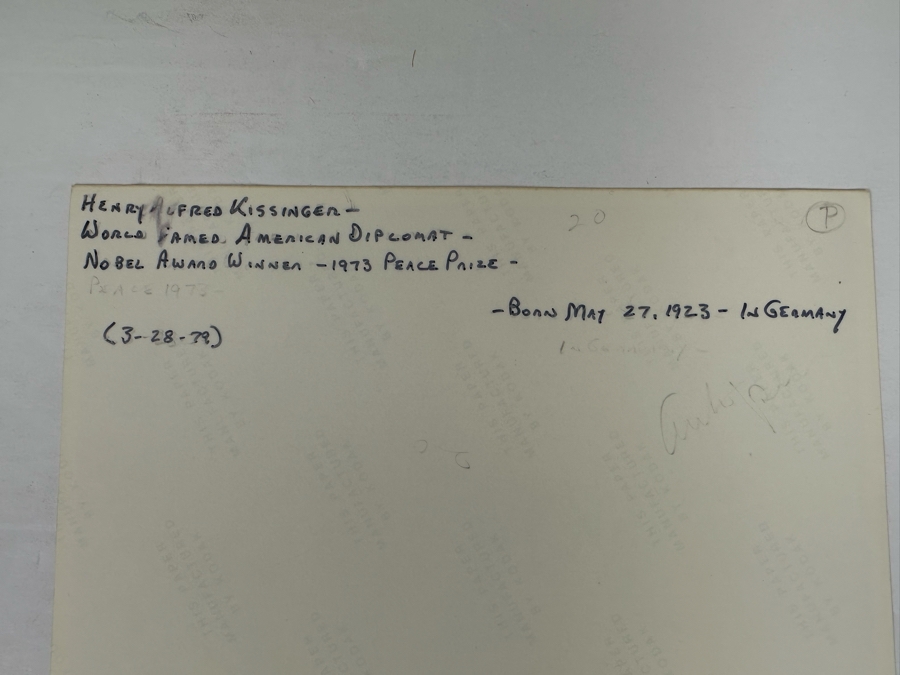 HENRY ALFRED KISSINGER -
20
P
WORLD FAMED AMERICAN DIPLOMAT -
NOBEL AWARD WINNER - 1973 PEACE PRIZE -
PEACE 1973 -
- BORN MAY 27, 1923 - IN GERMANY
(3-28-79)
IN GERMANY -